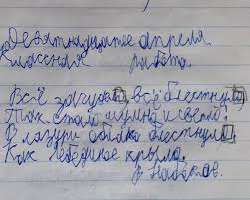 Девятнадцатое апреля
Классная работа.
Всё всё блестнуло
Так стало шумно и светло.
В лазури облако блестнуло
Как лебединое крыло.
В Набоков.